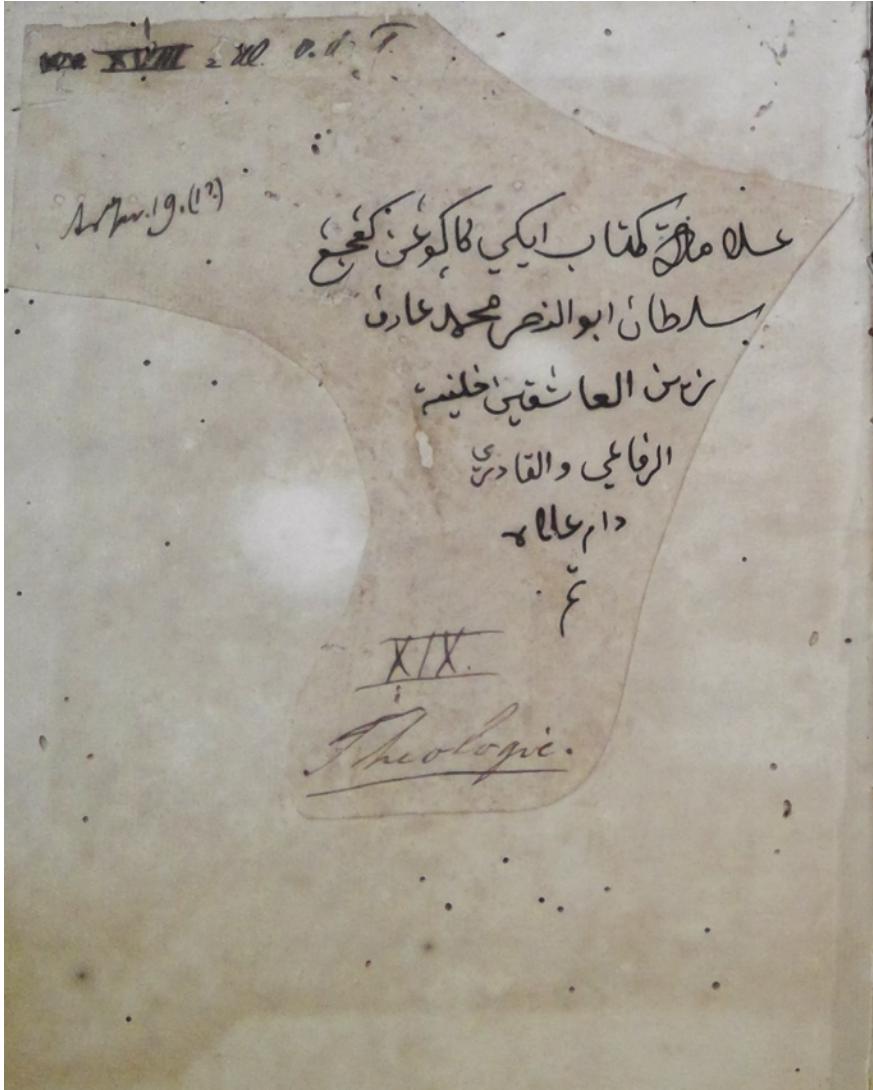 XVIII
علامة كتاب ايكي كاكوڠن كڠجڠ
سلطان ابو النصر محمد عارف
زين العاشقين خليفة
الرفاعي والقادري
دام علاه
XIX.
Theologie.